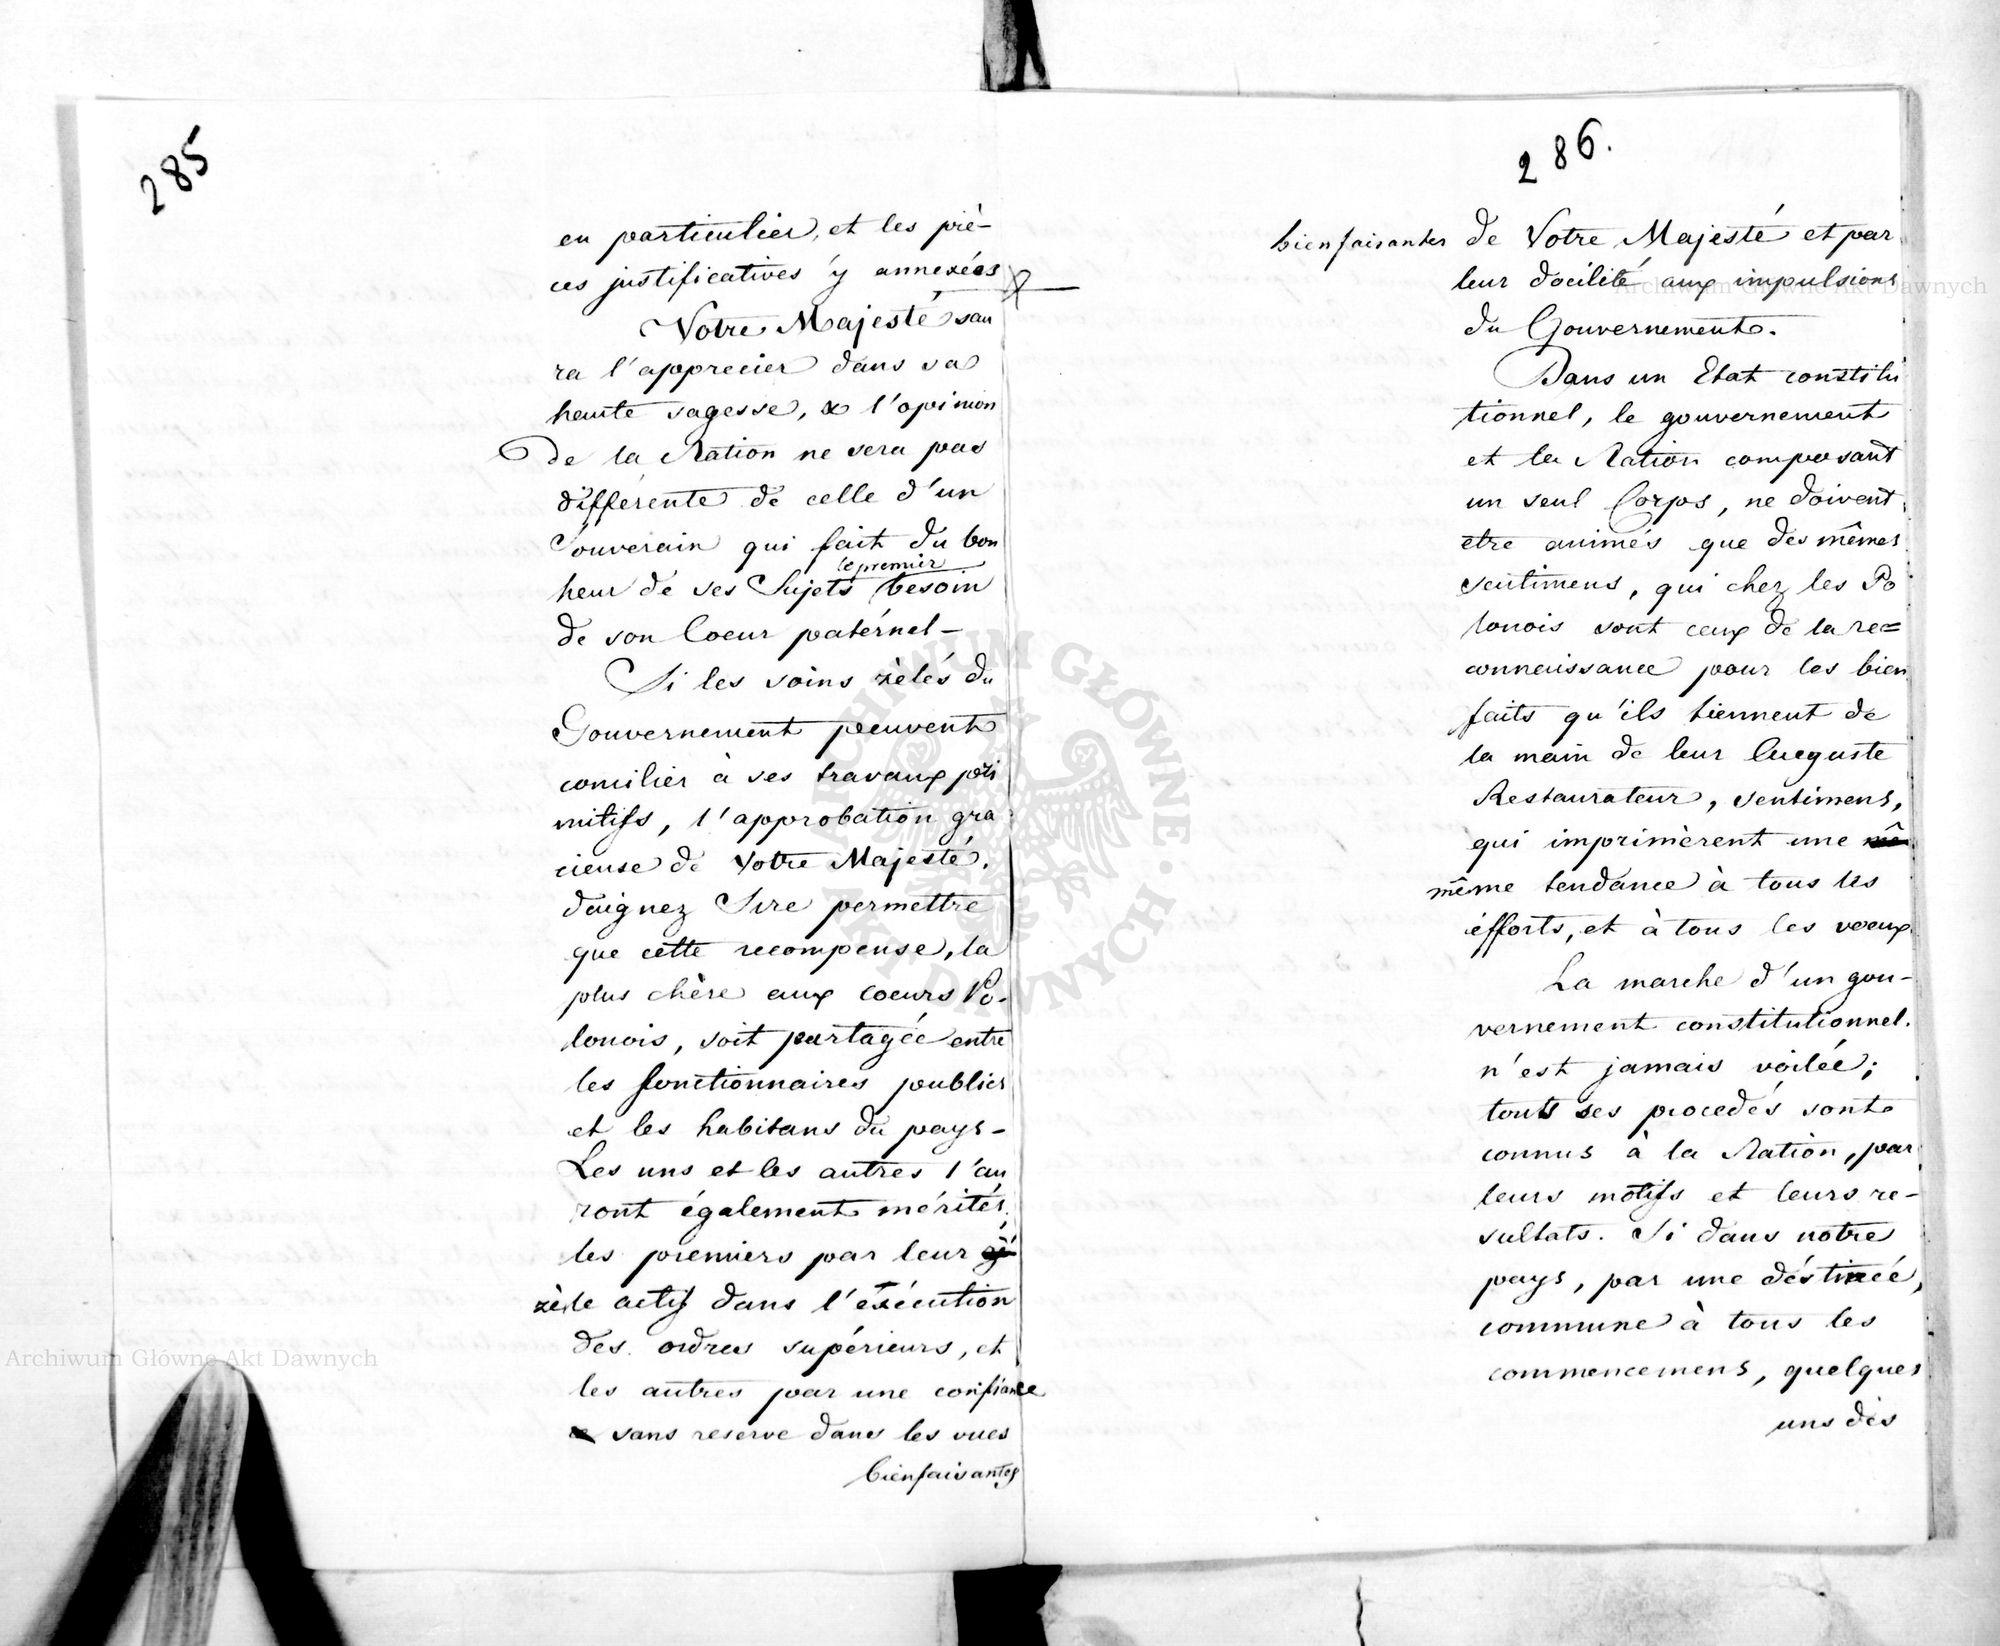 285
en particulier, et les piè-
ces justificatives y annexées
Votre Majesté sau
ra l'apprecier dans sa
haute sagesse, & l'opinion
de la Nation ne sera pas
différente de celle d'un
Souverain qui fait du bon
le premier
heur de ses Sujets besoin
de son Coeur patérnel-
Si les soins zèlés du
Gouvernement peuvent
concilier à ses travaux pri
mitifs, l'approbation gra
cieuse de Votre Majesté,
daignez Sire permettre
que cette recompense, la
plus chère aux coeurs Po-
lonois, soit partagée entre
les fonctionnaires publics
et les habitans du pays-
Les uns et les autres l'au
ront également mérités,
les premiers par leur
zèle actif dans l'éxécution
des ordres supérieurs, et
les autres par une confiance
sans reserve dans les vues
bienfaisantes
286.
bienfaisantes de Votre Majesté et par
leur docilité aux impulsions
du Gouvernement.
Dans un Etat constitu
tionnel, le gouvernement
et la Nation composant
un seul Corps, ne doivent
etre animés que des mêmes
sentimens, qui chez les Po
lonois sont ceux de la re=
connaissance pour les bien
faits qu'ils tiennent de
la main de leur Auguste
Restaurateur, sentimens,
qui imprimèrent une
même tendance à tous les
éfforts, et à tous les voeux
La marche d'un gou-
vernement constitutionnel.
n'est jamais voilée;
touts ses procedés sont
connus à la Nation, par
leurs motifs et leurs re-
sultats. Si dans notre
pays, par une déstinée,
commune à tous les
commencemens, quelques
uns des
Archiwum Główne Akt Dawnych
Archiwum Główne Akt Dawnych
ARCHIWUM GŁÓWNE · AKT DAWNYCH ·